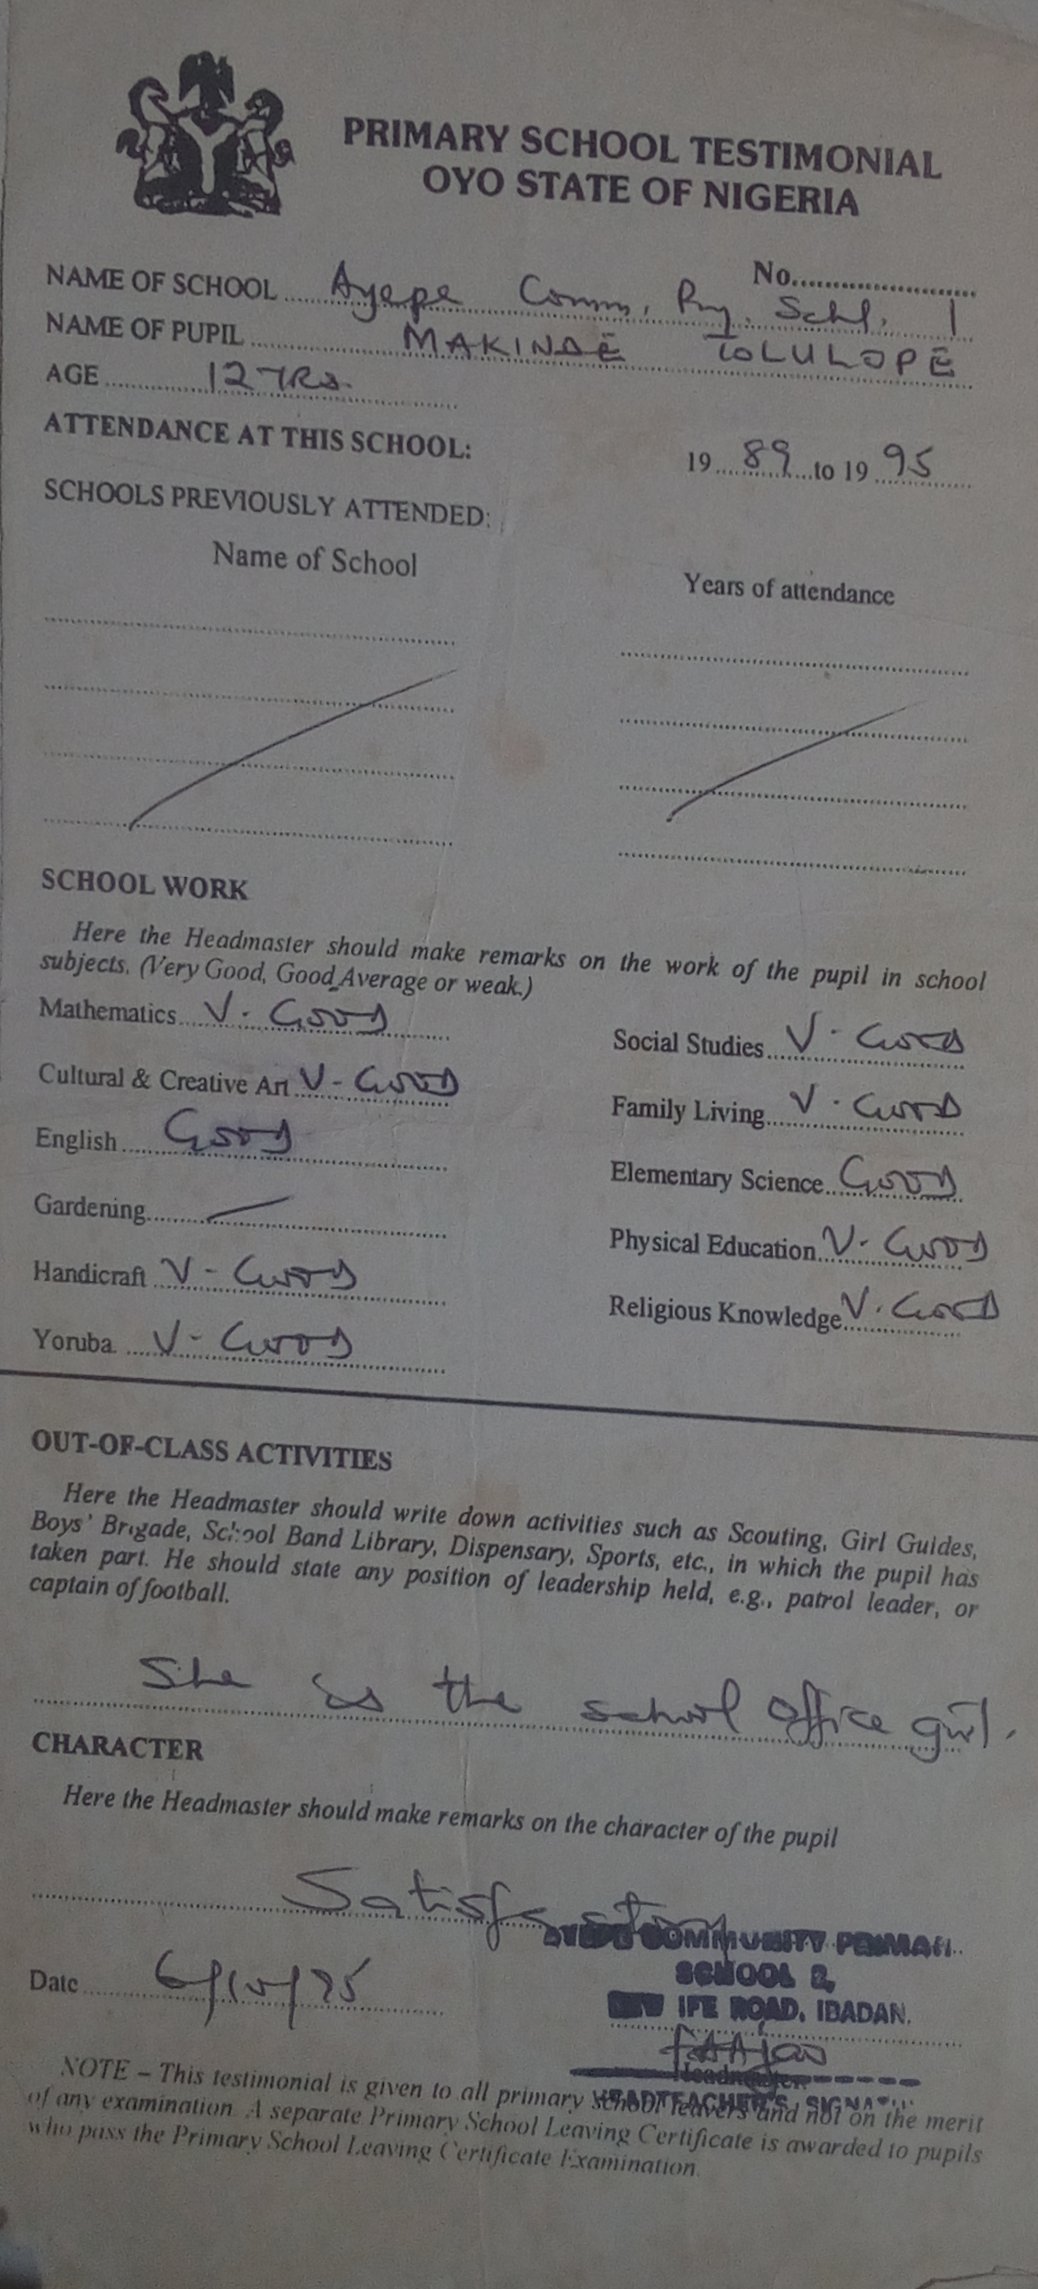 PRIMARY SCHOOL TESTIMONIAL
OYO STATE OF NIGERIA
No.
NAME OF SCHOOL Ayepe Comm. Pry. Schl. 1
NAME OF PUPIL MAKINDE TOLULOPE
AGE 12 YRS.
ATTENDANCE AT THIS SCHOOL: 19 89 to 19 95
SCHOOLS PREVIOUSLY ATTENDED:
Name of School Years of attendance
SCHOOL WORK
Here the Headmaster should make remarks on the work of the pupil in school
subjects. (Very Good, Good, Average or weak.)
Mathematics V. GOOD Social Studies V. GOOD
Cultural & Creative Art V-GOOD Family Living V. GOOD
English GOOD Elementary Science GOOD
Gardening — Physical Education V. GOOD
Handicraft V-GOOD Religious Knowledge V. GOOD
Yoruba V-GOOD
OUT-OF-CLASS ACTIVITIES
Here the Headmaster should write down activities such as Scouting, Girl Guides,
Boys' Brigade, School Band Library, Dispensary, Sports, etc., in which the pupil has
taken part. He should state any position of leadership held, e.g., patrol leader, or
captain of football.
She is the school office girl.
CHARACTER
Here the Headmaster should make remarks on the character of the pupil
Satisfactory
COMMUNITY PRIMARY
SCHOOL
Date 6/10/95
IFE ROAD, IBADAN.
Headmaster
HEADTEACHER'S SIGNATU
NOTE – This testimonial is given to all primary school leavers and not on the merit
of any examination. A separate Primary School Leaving Certificate is awarded to pupils
who pass the Primary School Leaving Certificate Examination.